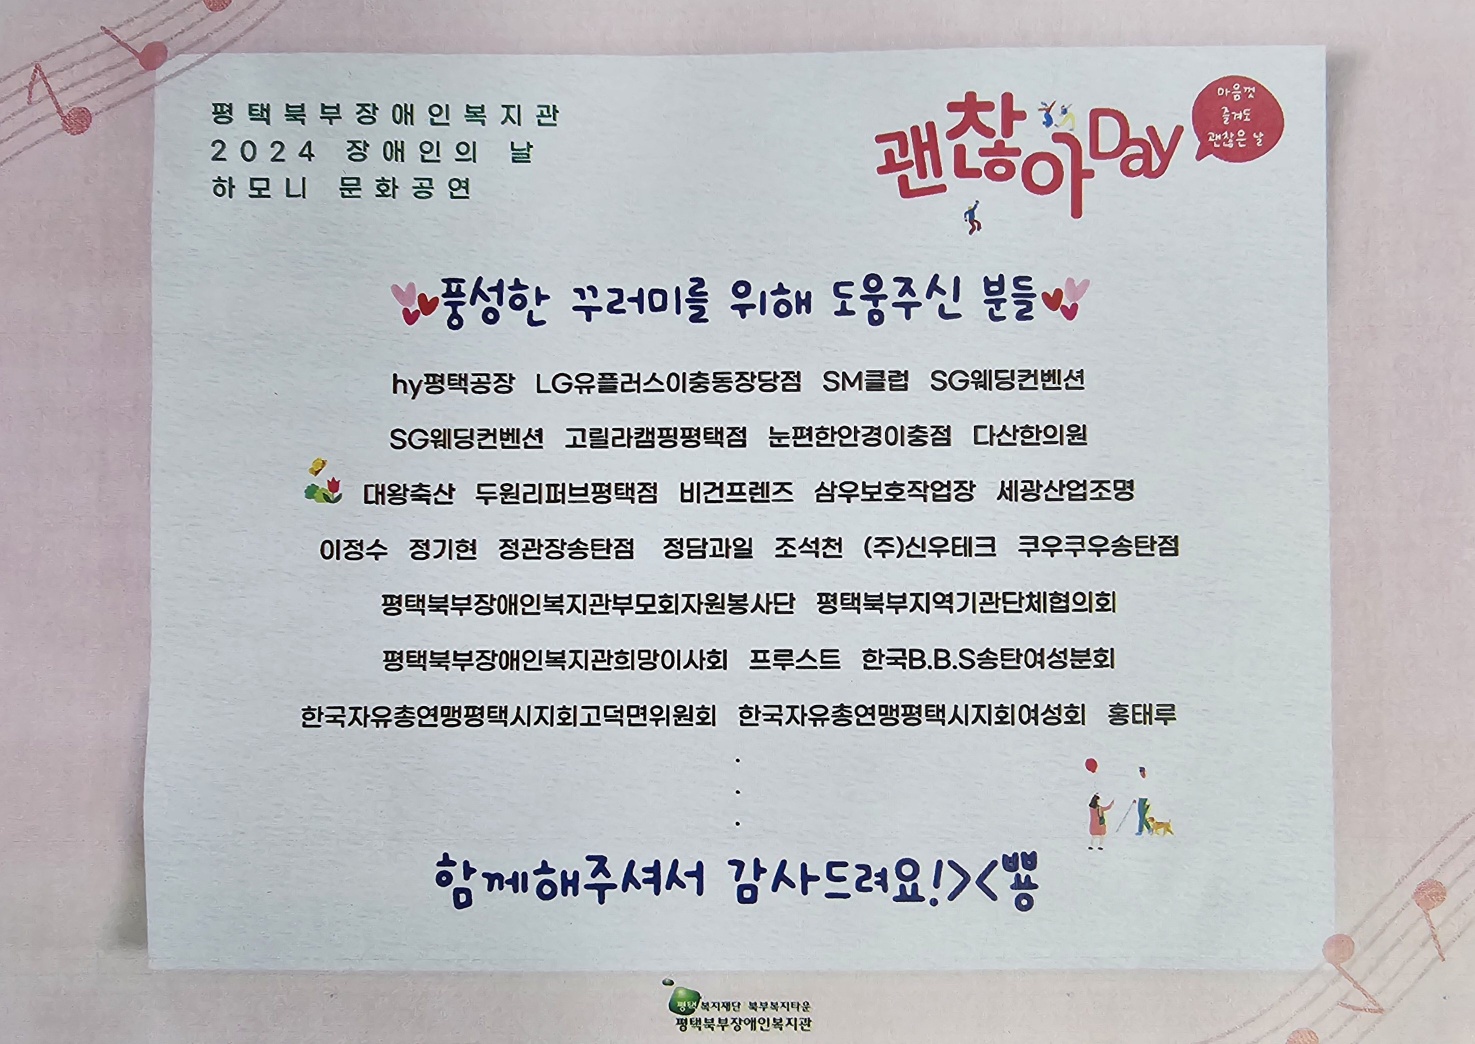 평택북부장애인복지관
2024 장애인의 날
하모니 문화공연
괜찮아Day
마음껏
즐겨도
괜찮은 날
풍성한 꾸러미를 위해 도움주신 분들
hy평택공장 LG유플러스이충동장당점 SM클럽 SG웨딩컨벤션
SG웨딩컨벤션 고릴라캠핑평택점 눈편한안경이충점 다산한의원
대왕축산 두원리퍼브평택점 비건프렌즈 삼우보호작업장 세광산업조명
이정수 정기현 정관장송탄점 정담과일 조석천 (주)신우테크 쿠우쿠우송탄점
평택북부장애인복지관부모회자원봉사단 평택북부지역기관단체협의회
평택북부장애인복지관희망이사회 프루스트 한국B.B.S송탄여성분회
한국자유총연맹평택시지회고덕면위원회 한국자유총연맹평택시지회여성회 홍태루
.
.
.
함께해주셔서 감사드려요!><뿅
평택복지재단 북부복지타운
평택북부장애인복지관